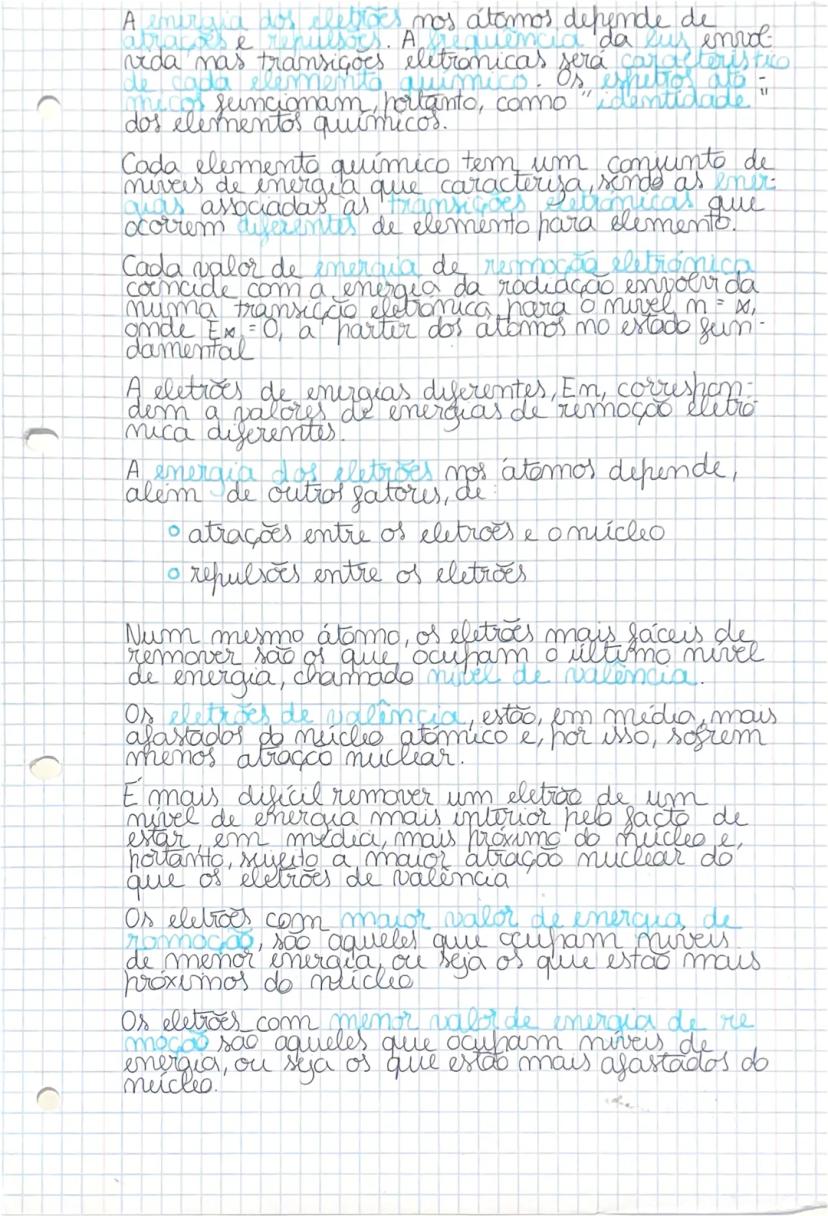 A energia dos eletrões nos átomos depende de
atrações e repulsões. A frequência da luz envol-
vida nas transições eletrónicas será característico
de cada elemento químico. Os espetros ató-
micos funcionam, portanto, como "identidade"
dos elementos químicos.
Cada elemento químico tem um conjunto de
níveis de energia que caracterisa, sendo as ener-
gias associadas às transições eletrónicas que
ocorrem diferentes de elemento para elemento.
Cada valor de energia de remoção eletrónica
coincide com a energia da radiação envolvida
numa transicção eletrónica para o nível n = ∞,
onde E∞ = 0, a partir dos átomos no estado fun-
damental
A eletrões de energias diferentes, En, correspon-
dem a valores de energias de remoção eletró
nica diferentes.
A energia dos eletrões nos átomos depende,
além de outros fatores, de:
atrações entre os eletrões e o núcleo
repulsões entre os eletrões
Num mesmo átomo, os eletrões mais fáceis de
remover são os que ocupam o último nível
de energia, chamado nível de valência.
Os eletrões de valência, estão, em média, mais
afastados do núcleo atómico e, por isso, sofrem
menos atração nuclear.
É mais difícil remover um eletrão de um
nível de energia mais interior pelo facto de
estar, em média, mais próximo do núcleo e,
portanto, sujeito a maior atração nuclear do
que os eletrões de valência
Os eletrões com maior valor de energia de
romoção, são aqueles que ocupam níveis
de menor energia, ou seja os que estão mais
próximos do núcleo
Os eletrões com menor valor de energia de re
moção são aqueles que ocupam níveis de
energia, ou seja os que estão mais afastados do
núcleo.